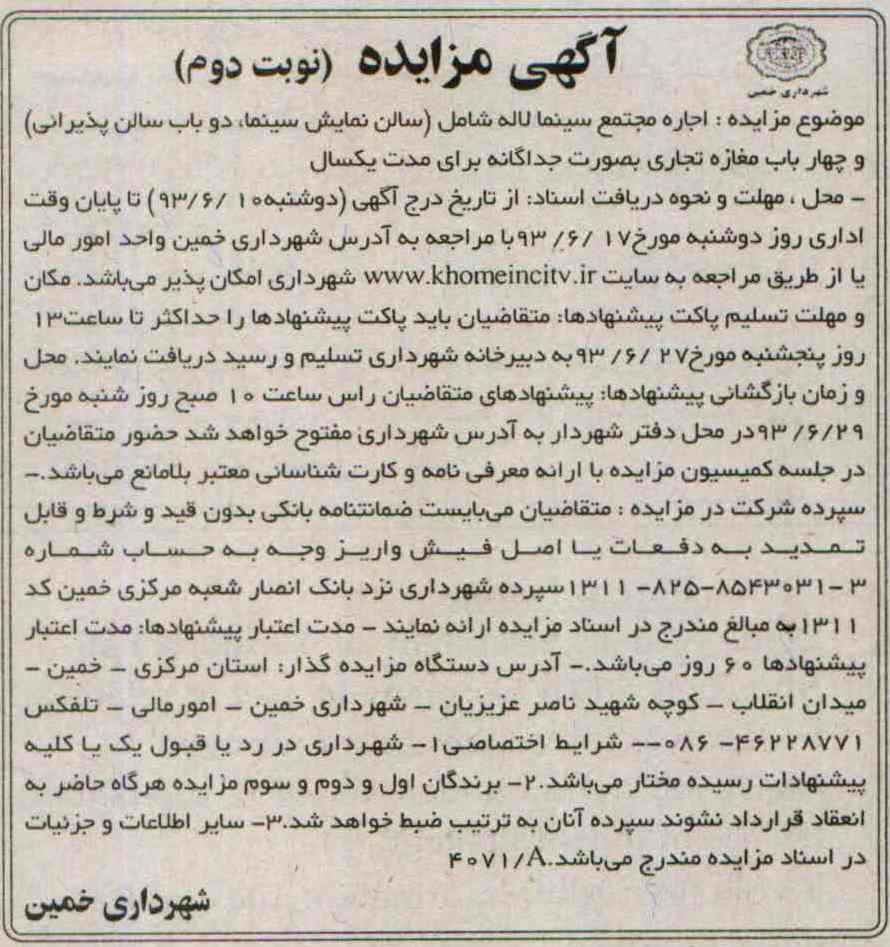 آگهی مزایده (نوبت دوم)
شهرداری خمین
موضوع مزایده : اجاره مجتمع سینما لاله شامل (سالن نمایش سینما، دو باب سالن پذیرائی)
و چهار باب مغازه تجاری بصورت جداگانه برای مدت یکسال
- محل ، مهلت و نحوه دریافت اسناد: از تاریخ درج آگهی (دوشنبه۱۰ /۹۳/۶) تا پایان وقت
اداری روز دوشنبه مورخ۱۷ /۶/ ۹۳با مراجعه به آدرس شهرداری خمین واحد امور مالی
یا از طریق مراجعه به سایت www.khomeincitv.ir شهرداری امکان پذیر می‌باشد. مکان
و مهلت تسلیم پاکت پیشنهادها: متقاضیان باید پاکت پیشنهادها را حداکثر تا ساعت۱۳
روز پنجشنبه مورخ۲۷ /۶/ ۹۳به دبیرخانه شهرداری تسلیم و رسید دریافت نمایند. محل
و زمان بازگشائی پیشنهادها: پیشنهادهای متقاضیان راس ساعت ۱۰ صبح روز شنبه مورخ
۹۳/۶/۲۹در محل دفتر شهردار به آدرس شهرداری مفتوح خواهد شد حضور متقاضیان
در جلسه کمیسیون مزایده با ارائه معرفی نامه و کارت شناسائی معتبر بلامانع می‌باشد.-
سپرده شرکت در مزایده : متقاضیان می‌بایست ضمانتنامه بانکی بدون قید و شرط و قابل
تمدید به دفعات یا اصل فیش واریز وجه به حساب شماره
۳-۸۵۴۳۰۳۱-۸۲۵- ۱۳۱۱سپرده شهرداری نزد بانک انصار شعبه مرکزی خمین کد
۱۳۱۱به مبالغ مندرج در اسناد مزایده ارائه نمایند - مدت اعتبار پیشنهادها: مدت اعتبار
پیشنهادها ۶۰ روز می‌باشد.- آدرس دستگاه مزایده گذار: استان مرکزی – خمین –
میدان انقلاب – کوچه شهید ناصر عزیزیان – شهرداری خمین – امورمالی – تلفکس
۴۶۲۲۸۷۷۱- ۰۸۶-- شرایط اختصاصی۱- شهرداری در رد یا قبول یک یا کلیه
پیشنهادات رسیده مختار می‌باشد.۲- برندگان اول و دوم و سوم مزایده هرگاه حاضر به
انعقاد قرارداد نشوند سپرده آنان به ترتیب ضبط خواهد شد.۳- سایر اطلاعات و جزئیات
در اسناد مزایده مندرج می‌باشد.۴۰۷۱/A
شهرداری خمین